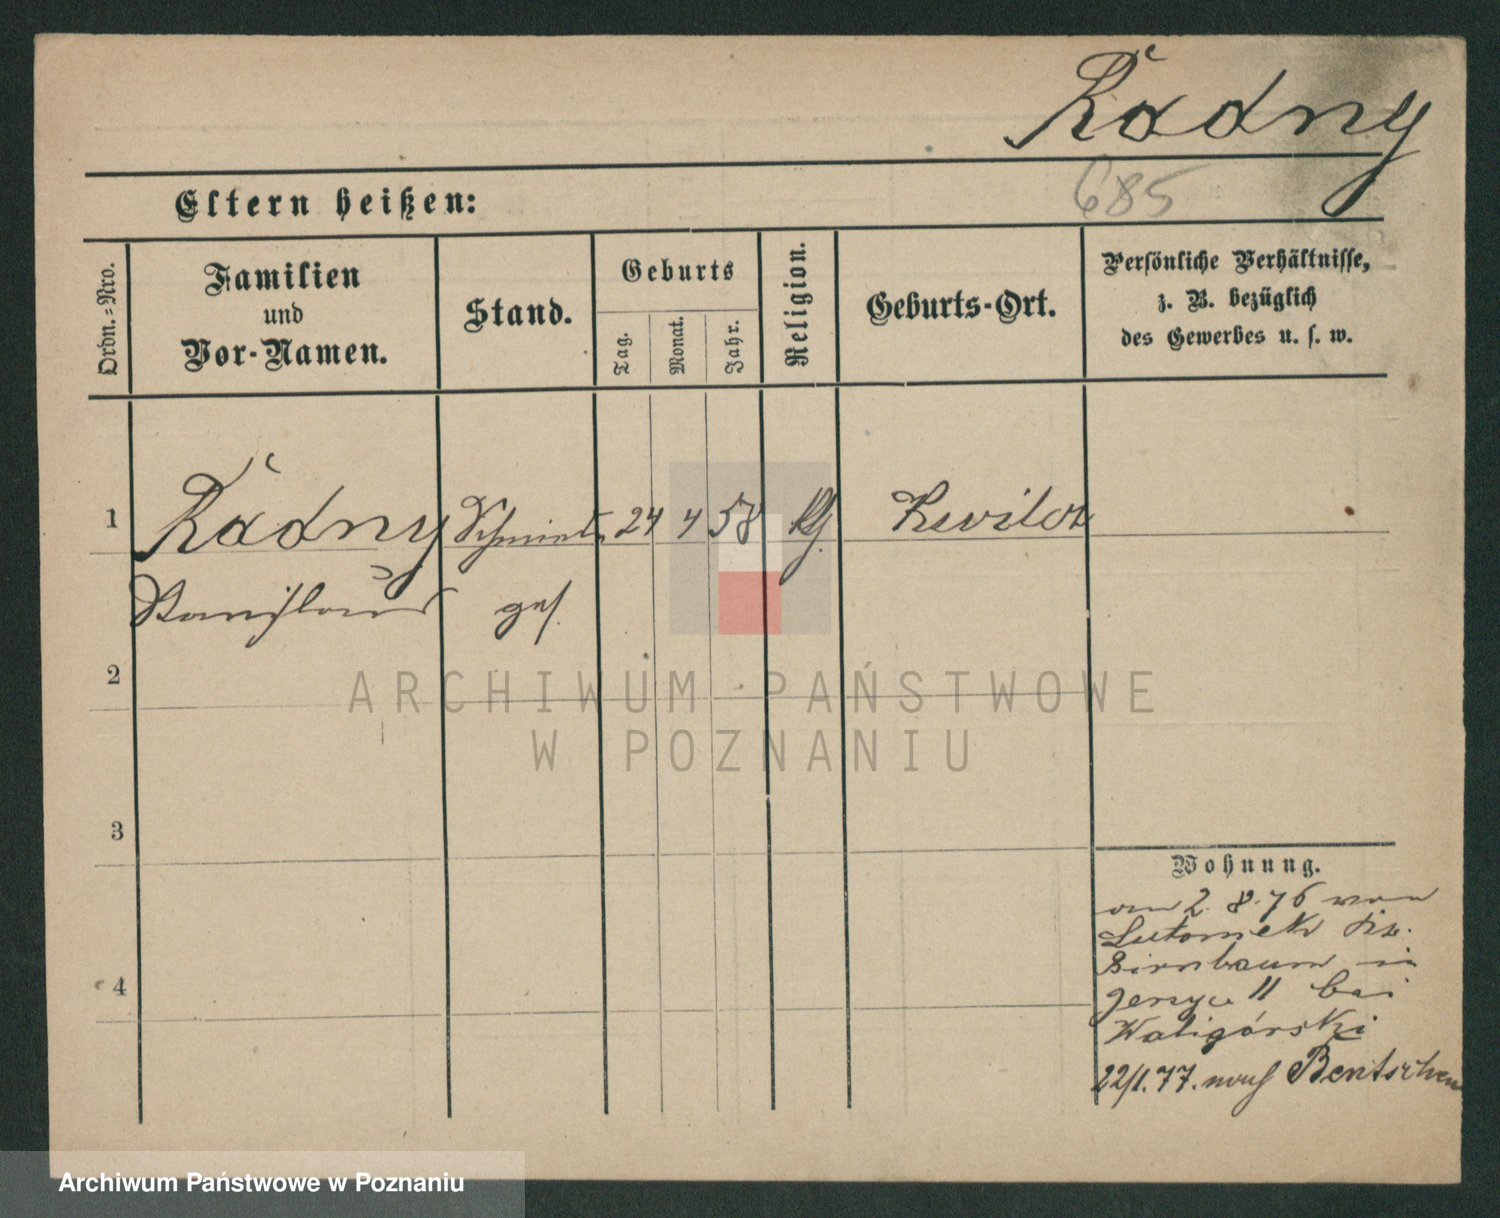 Řadny
685
Eltern heißen:
Ordn.-Nro.
Familien
und
Vor-Namen.
Stand.
Geburts
Tag.
Monat.
Jahr.
Religion.
Geburts-Ort.
Persönliche Verhältnisse,
z. B. bezüglich
des Gewerbes u. s. w.
1
Řadny
Schmiede
24
4
58
kth.
Kwilcz
Stanislaus
ges.
2
3
4
Wohnung.
am 2. 8. 76 von
Lutomek Krs.
Birnbaum in
Jerzyce 11 bei
Waligórski
22/1. 77. nach Bentschen
ARCHIWUM PAŃSTWOWE
W POZNANIU
Archiwum Państwowe w Poznaniu